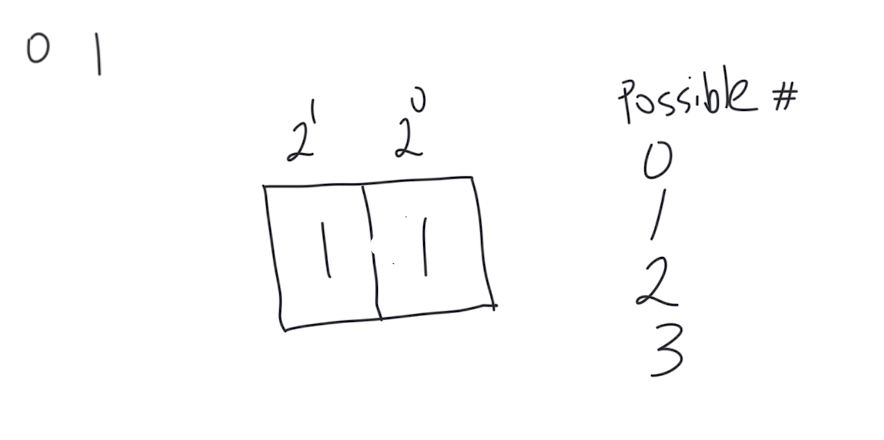 0 1
2¹ 2⁰
1 1
Possible #
0
1
2
3